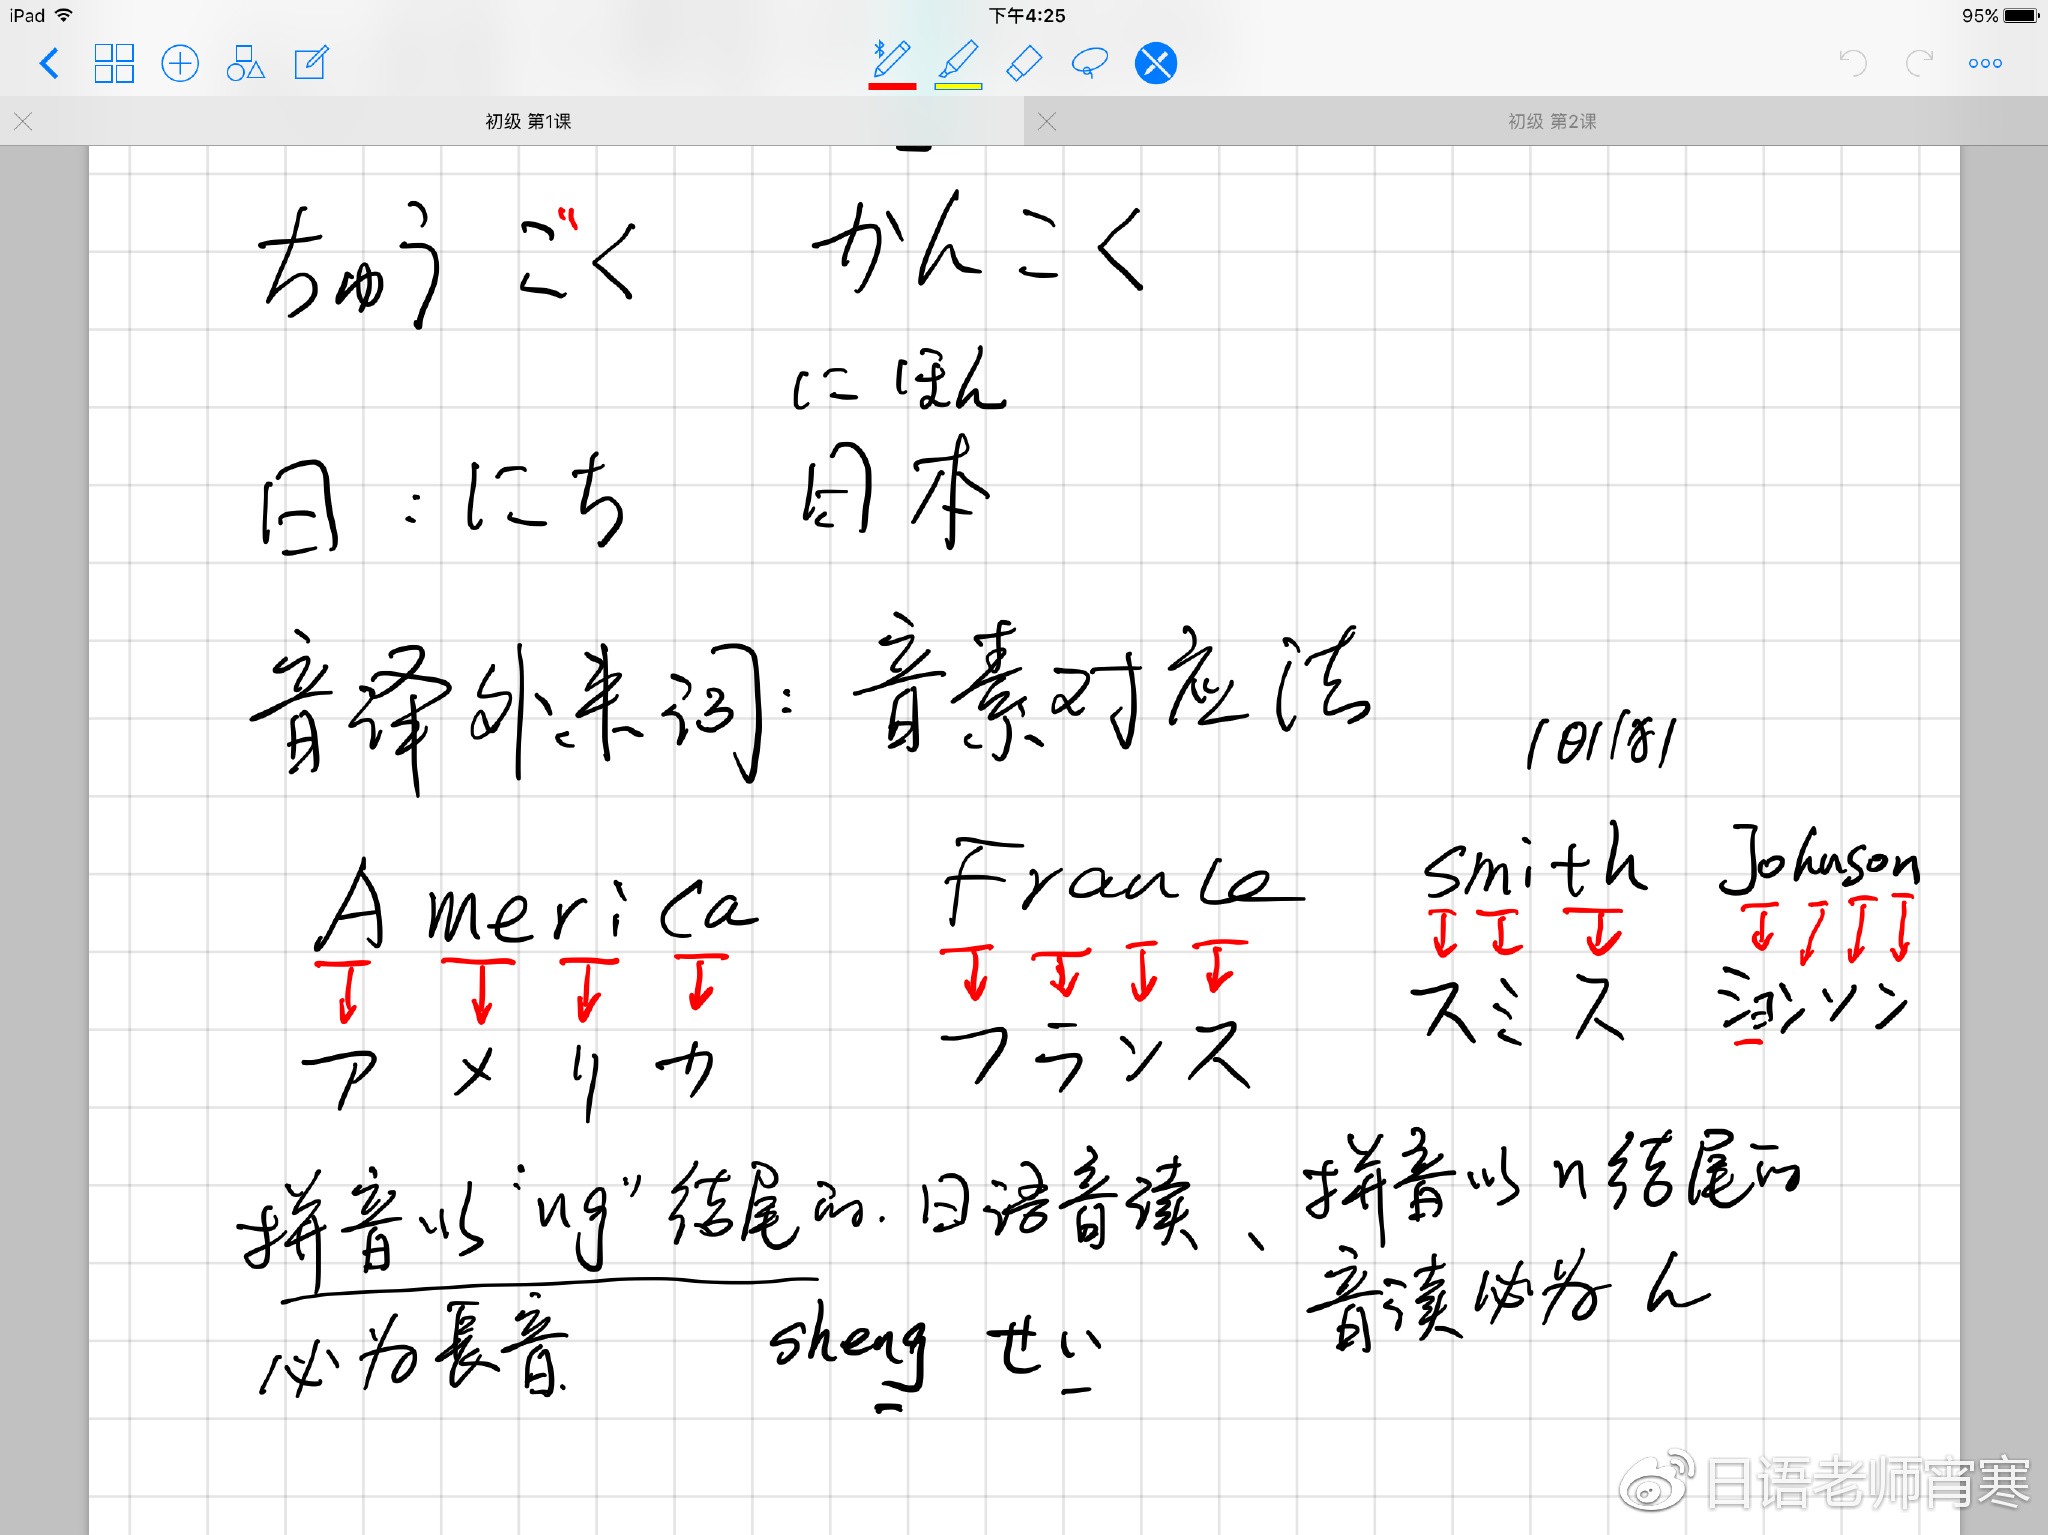 iPad 下午4:25 95%
初级 第1课 初级 第2课
ちゅうごく かんこく
にほん
日：にち 日本
音译外来词：音素对应法
/θ/ /ð/
America France Smith Johnson
アメリカ フランス スミス ジョンソン
拼音以“ng”结尾的.日语音读、拼音以n结尾的
必为長音. sheng せい 音读必为ん
日语老师宵寒